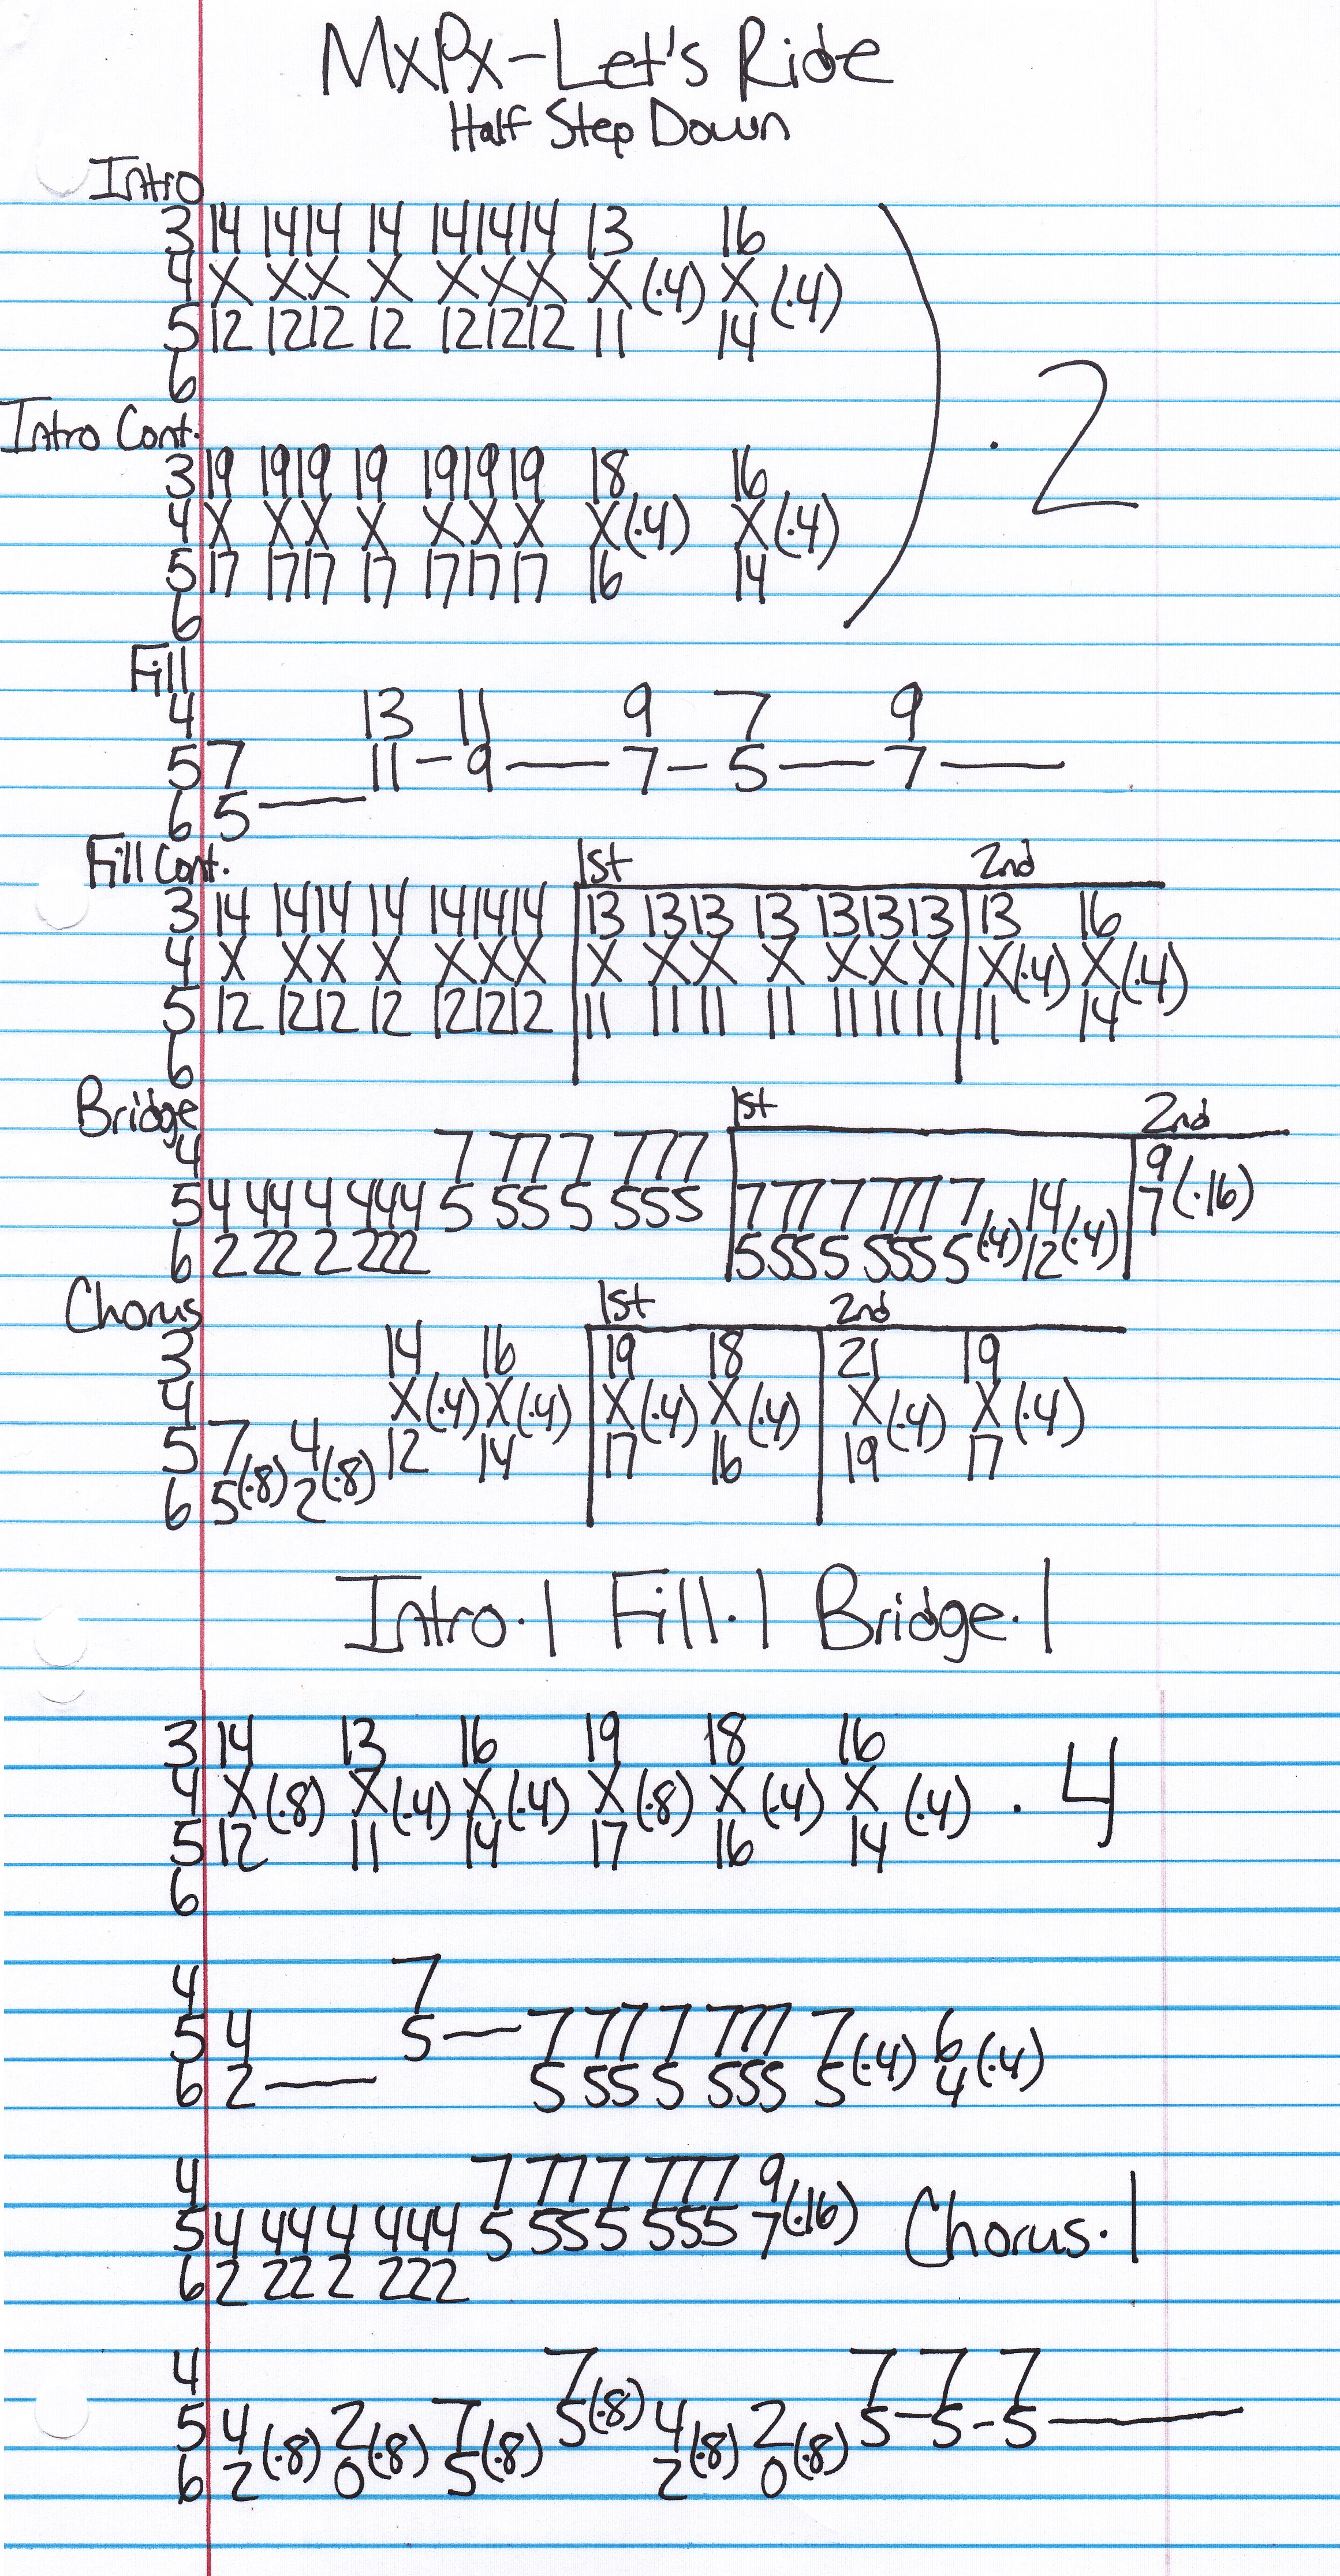 MxPx-Let's Ride
Half Step Down
Intro
3 14 14 14 14 14 14 14 13 16
4 X X X X X X X X (·4) X (·4)
5 12 12 12 12 12 12 12 11 14
6
) · 2
Intro Cont.
3 19 19 19 19 19 19 19 18 16
4 X X X X X X X X (·4) X (·4)
5 17 17 17 17 17 17 17 16 14
6
Fill
4 13 11 9 7 9
5 7 11 - 9 — 7 - 5 — 7 —
6 5 —
Fill Cont. 1st 2nd
3 14 14 14 14 14 14 14 13 13 13 13 13 13 13 13 16
4 X X X X X X X X X X X X X X X (·4) X (·4)
5 12 12 12 12 12 12 12 11 11 11 11 11 11 11 11 14
6
Bridge 1st 2nd
4 7 77 7 777 9
5 4 44 4 444 5 55 5 555 7 77 7 777 7 14 7 (·16)
6 2 22 2 222 5 55 5 555 5 (·4) 12 (·4)
Chorus 1st 2nd
3 14 16 19 18 21 19
4 X (·4) X (·4) X (·4) X (·4) X (·4) X (·4)
5 7 4 12 14 17 16 19 17
6 5 (·8) 2 (·8)
Intro·1 Fill·1 Bridge·1
3 14 13 16 19 18 16
4 X (·8) X (·4) X (·4) X (·8) X (·4) X (·4) · 4
5 12 11 14 17 16 14
6
4 7
5 4 5 — 7 77 7 777 7 6
6 2 — 5 55 5 555 5 (·4) 4 (·4)
4 7 77 7 777 9
5 4 44 4 444 5 55 5 555 7 (·16) Chorus·1
6 2 22 2 222
4 7 7 7 7
5 4 2 7 5 (·8) 4 2 5 - 5 - 5 —
6 2 (·8) 0 (·8) 5 (·8) 2 (·8) 0 (·8)